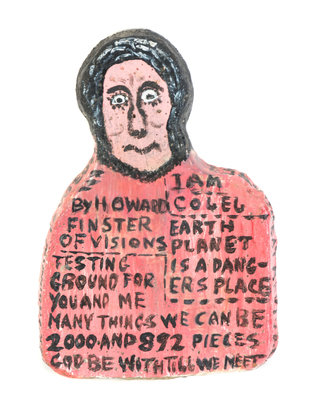 I AM
BY HOWARD COLEL
FINSTER EARTH
OF VISIONS PLANET
TESTING IS A DANG-
GROUND FOR ERS PLACE
YOU AND ME
MANY THINGS WE CAN BE
2000.AND 892 PIECES
GOD BE. WITH TILL WE MEET